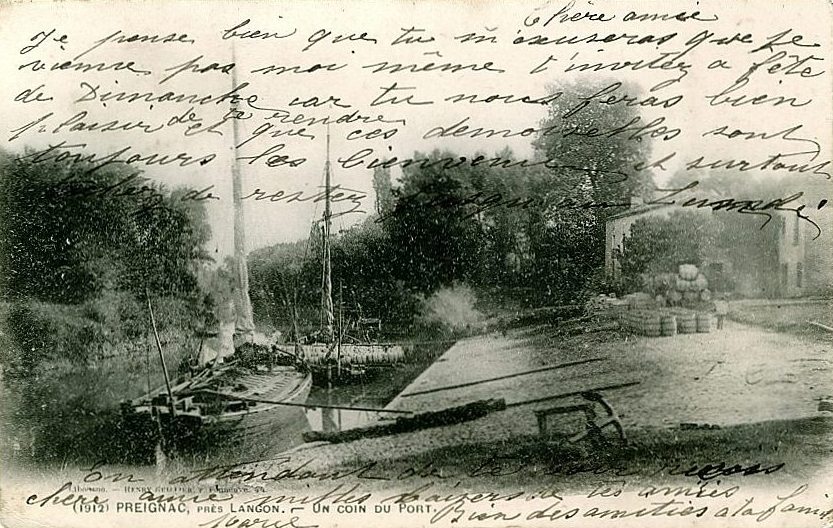 Chère amie
Je pense bien que tu m'excuseras que je
vienne pas moi même t'invitez a fête
de Dimanche car tu nous feras bien
plaisir de te rendre
et que ces demoiselles sont
toujours les bienvenu et surtout
de restez jusqu'au Lundi
En attendant de te voir reçois
chère amie mille baizers de tes amies
Marie
Bien des amities a la fami
Libourne. — HENRY GUILLIER,
(1912) PREIGNAC, PRÈS LANGON. — UN COIN DU PORT.